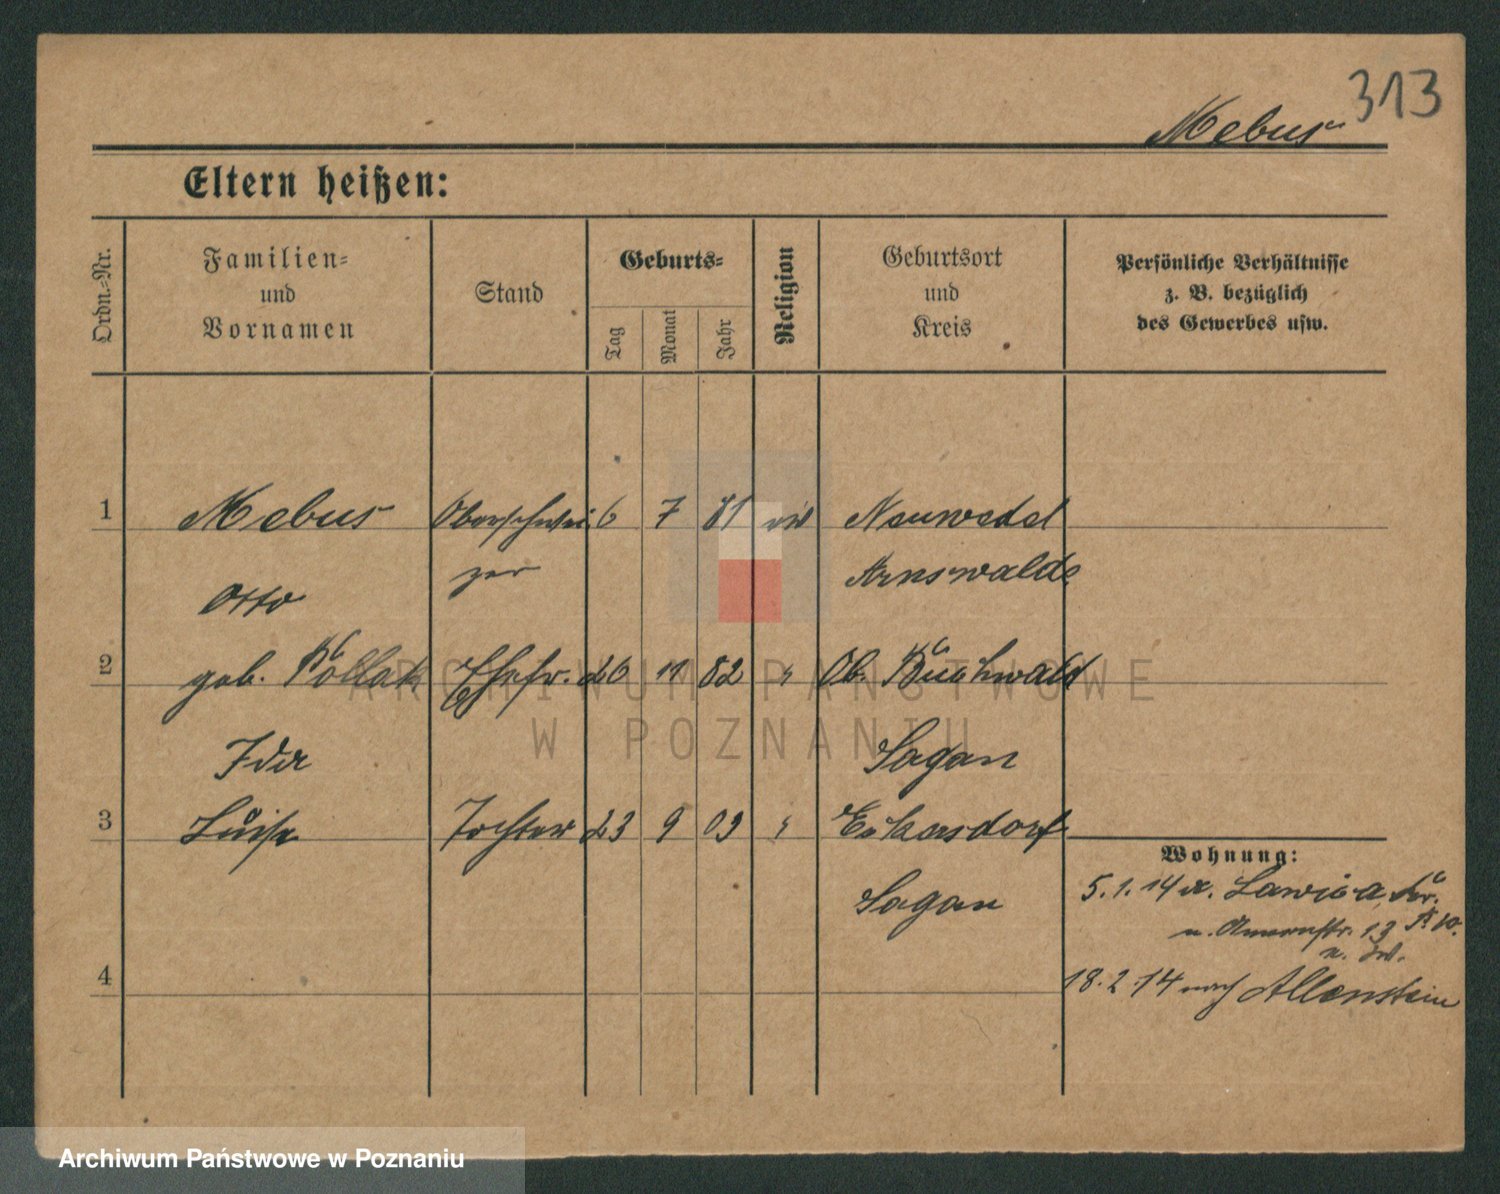 313
Mebus
Eltern heißen:
Ordn.-Nr.
Familien-
und
Vornamen
Stand
Geburts-
Tag
Monat
Jahr
Religion
Geburtsort
und
Kreis
Persönliche Verhältnisse
z. B. bezüglich
des Gewerbes usw.
1 Mebus Oberschwei 6 7 81 Neuwedel
Otto zer Arnswalde
2 geb. Pollak Ehefr. 26 11 82 " Ob. Buchwald
Ida Sagan
3 Luise Tochter 23 9 09 " Eckersdorf
Sagan
Wohnung:
5.1.14 v. Lawica
13
4
18.2.14 nach Allenstein
ARCHIWUM PAŃSTWOWE
W POZNANIU
Archiwum Państwowe w Poznaniu